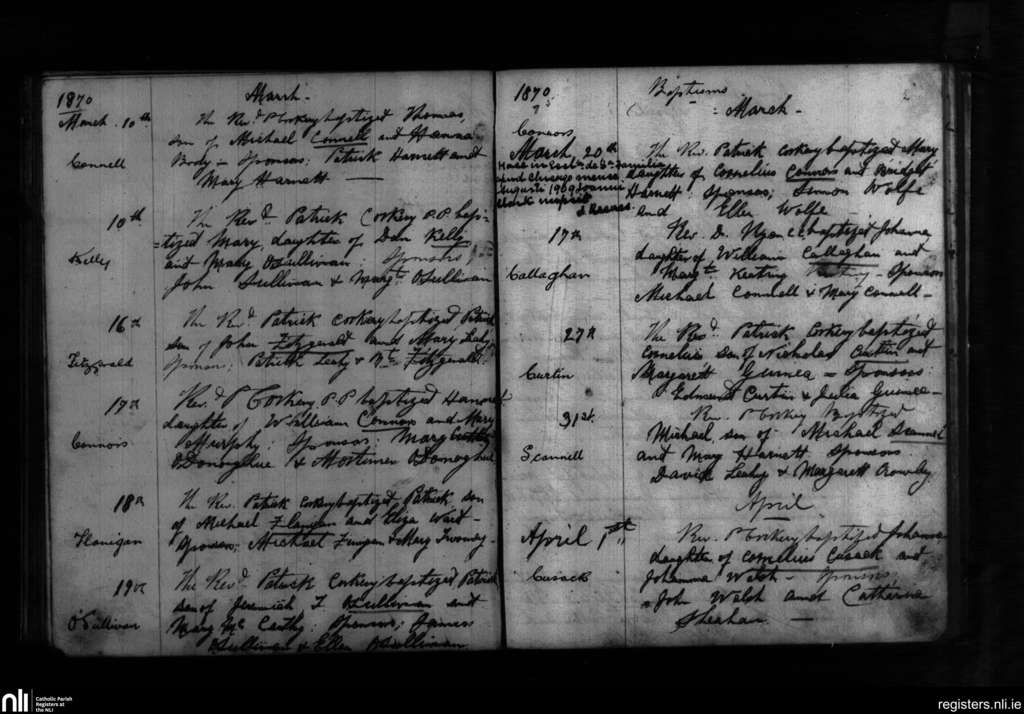 1870
March.
March. 10th
The Revd P Corkery baptized Thomas,
son of Michael Connell and Hanna
Connell
Brody - Sponsors: Patrick Harnett and
Mary Harnett
10th
The Revd Patrick Corkery P.P. bap-
=tized Mary, daughter of Dan Kelly
Kelley
and Mary O'Sullivan: Sponsors
John Sullivan & Margt O'Sullivan
16th
The Revd Patrick Corkery baptized, Patrick
son of John Fitzgerald and Mary Leahy
Fitzgerald
Sponsors; Patrick Leahy & Fitzgerald
17th
Revd P Corkery. P.P baptized Hanorah
daughter of William Connors and Mary
Connors
Murphy: Sponsors: Mary
O'Donoghue & Mortimer O'Donoghue
18th
The Rev. Patrick Corkery baptized, Patrick, son
of Michael Flanigan and Eliza Wait-
Flanigan
Sponsors; Michael & Mary Twomey-
19th
The Revd. Patrick Corkery baptized Patrick
son of Jeremiah F O'Sullivan and
O'Sullivan
Mary McCarthy: Sponsors; James
O'Sullivan & Ellen O'Sullivan
1870
Baptisms
March-
Connors
March, 20th
The Rev. Patrick Corkery baptized Mary
daughter of Cornelius Connors and Bridget
Harnett: Sponsors; Simon Wolfe
and Ellen Wolfe
de Sa. Familia
mense
Augusti 1909 Joanni
nupsit
17th
Rev. D. C.C. baptized Johanna
daughter of William Callaghan and
Callaghan
Margt. Keating - Sponsors
Michael Connell & Mary Connell-
27th
The Revd. Patrick Corkery baptized
Cornelius son of Nicholas Curtin and
Curtin
Margarett Guinea = Sponsors:
Edmund Curtin & Julia Guinea-
31st.
Rev. P Corkery Baptized
Michael, son of Michael Scannell
Scannell
and Mary Harnett Sponsors
David Leahy & Margarett Crowley
April
April 1st
Rev. P Corkery baptized Johanna
daughter of Cornelius Cusack and
Cusack
Johanna Welsh - Sponsors
John Welsh and Catherine
Sheahan. -
nli
Catholic Parish
Registers at
the NLI
registers.nli.ie